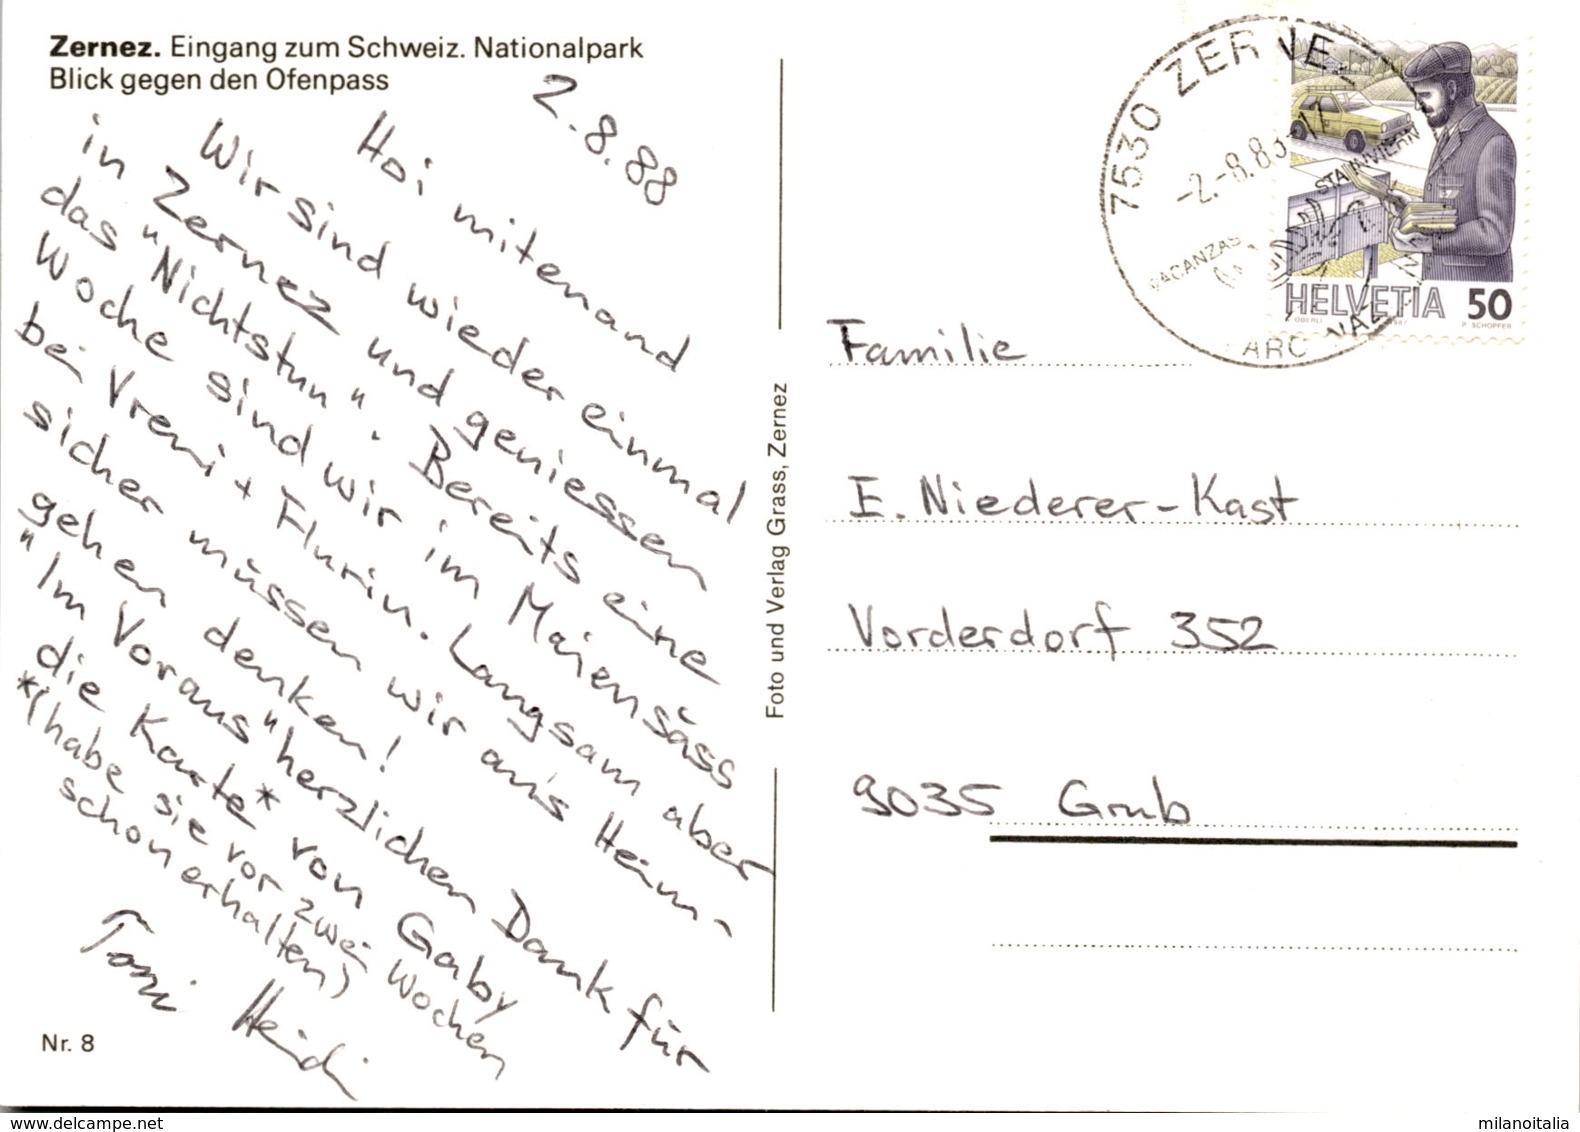 Zernez. Eingang zum Schweiz. Nationalpark
Blick gegen den Ofenpass
2.8.88
Hoi mitenand
Wir sind wieder einmal
in Zernez und geniessen
das "Nichtstun". Bereits eine
Woche sind wir im Maiensäss
bei Vreni + Flurin. Langsam aber
sicher müssen wir an's Heim-
gehen denken!
"Im Voraus" herzlichen Dank für
die Karte* von Gaby
*(habe sie vor zwei Wochen
schon erhalten)
Toni Heidi
Nr. 8
Foto und Verlag Grass, Zernez
7530 ZERNEZ
-2.-8.88
VACANZAS
PARC NAZIUNAL
HELVETIA 50
P. SCHOPFER
Familie
E. Niederer-Kast
Vorderdorf 352
9035 Grub
milanoitalia